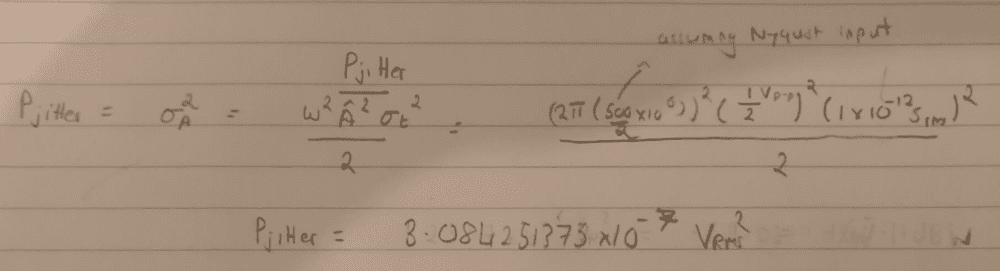 assuming Nyquist input
Pjitter
Pjitter = σ_A² = ω² Â² σ_t² / 2 = (2π (500/2 x10⁶))² (1/2 Vp-p)² (1x10⁻¹² S rms)² / 2
Pjitter = 3.084251375 x10⁻⁷ V_RMS²